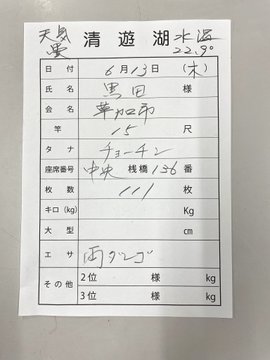 天気 清遊湖 水温
曇 22.9°
日付 6月13日 (木)
氏名 黒田 様
会名 草加市
竿 15 尺
タナ チョーチン
座席番号 中央 桟橋 136 番
枚数 111 枚
キロ(kg) Kg
大型 cm
エサ 両ダンゴ
その他 2位 様 kg
3位 様 kg